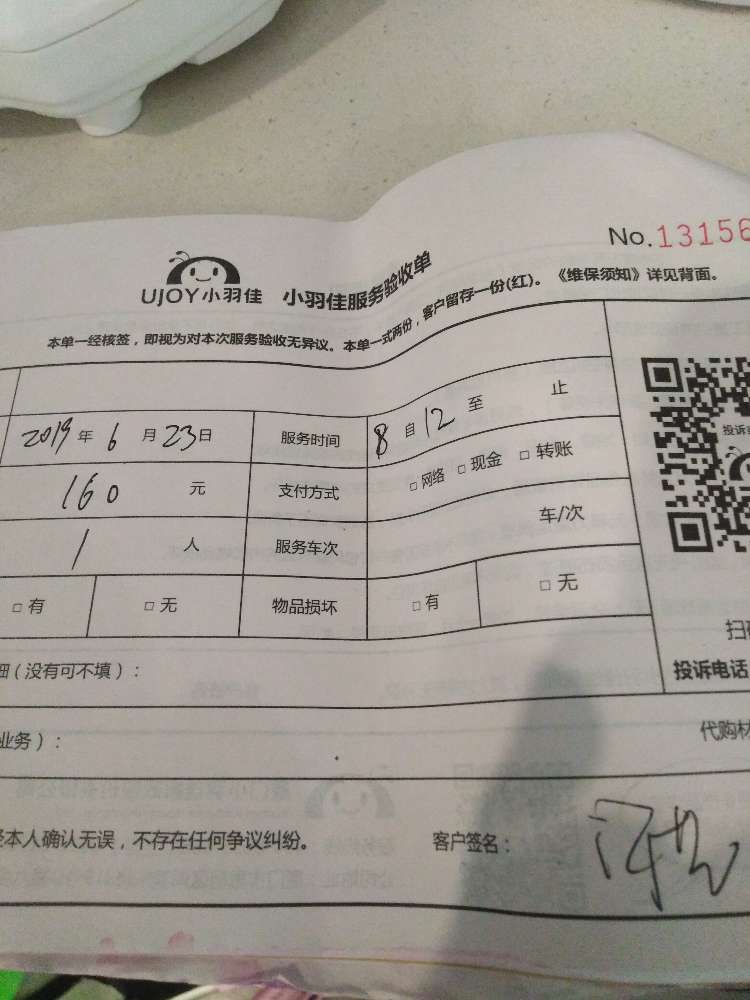 No.13156
UJOY小羽佳 小羽佳服务验收单
本单一经核签，即视为对本次服务验收无异议。本单一式两份，客户留存一份(红)。《维保须知》详见背面。
2019年6月23日 服务时间 8自12至 止
160 元 支付方式 □网络 □现金 □转账
1 人 服务车次 车/次
□有 □无 物品损坏 □有 □无
细（没有可不填）：
投诉电话
业务）：
代购材
本人确认无误，不存在任何争议纠纷。 客户签名：